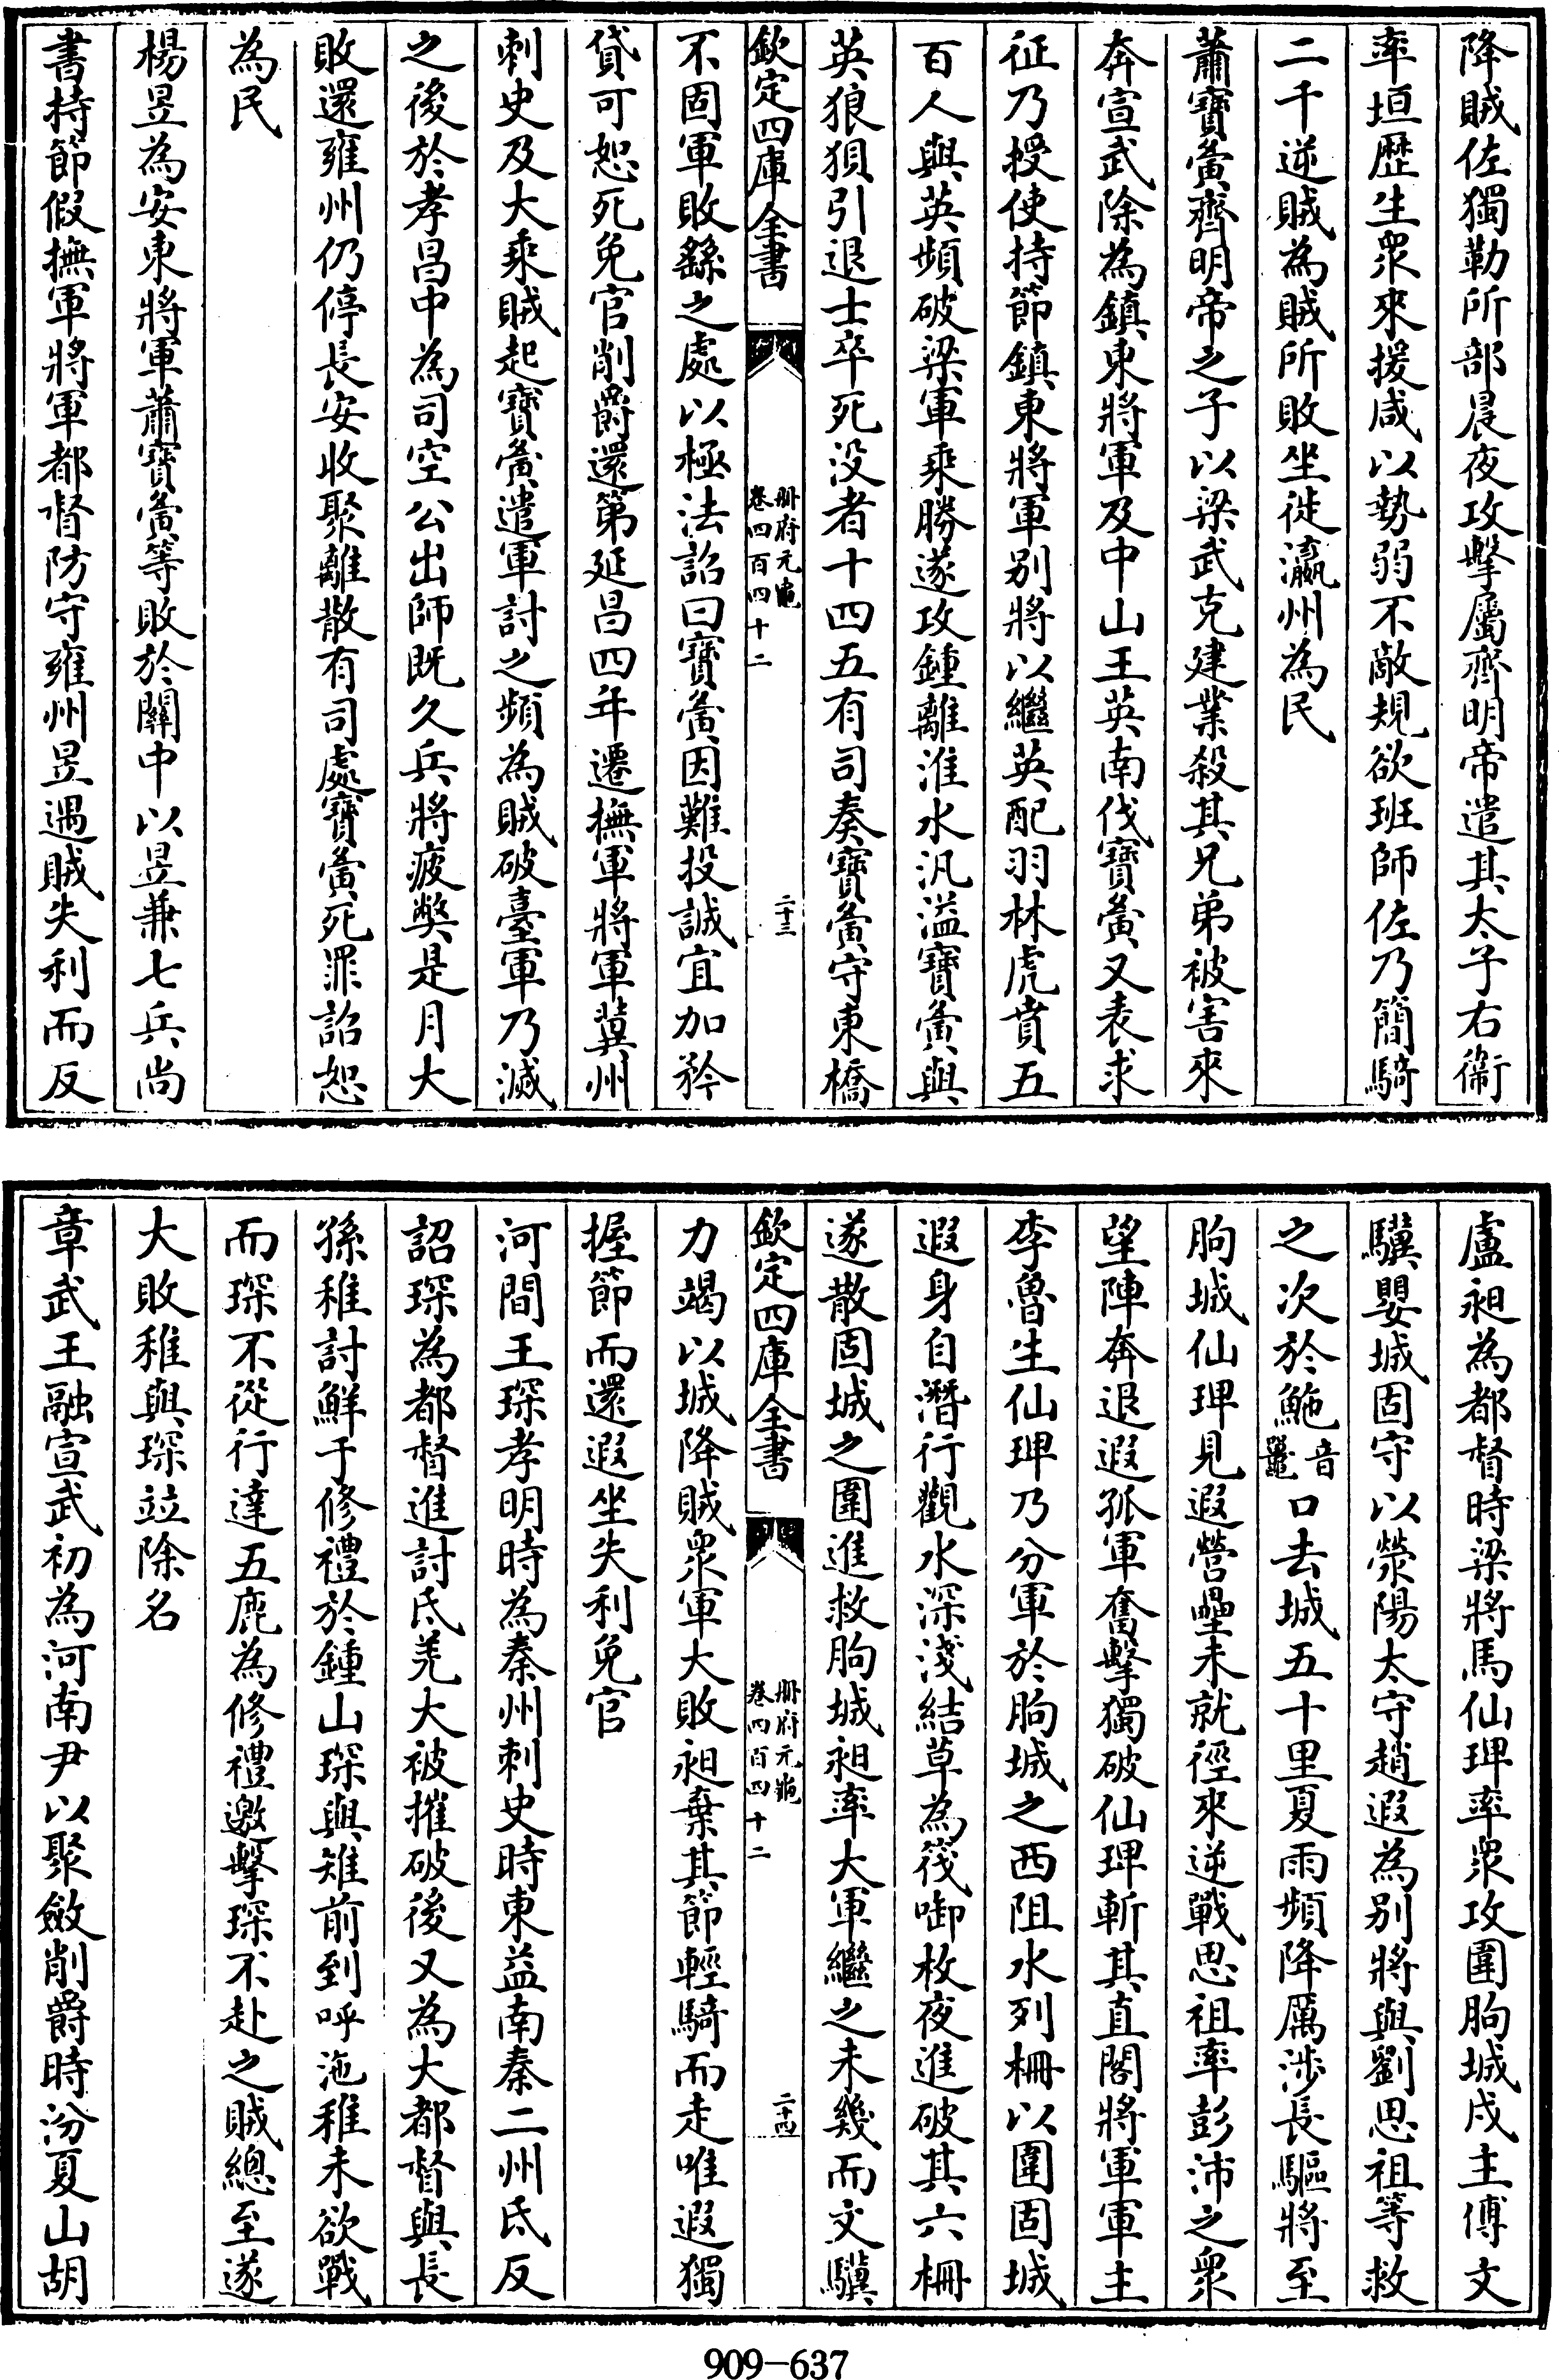 降賊佐獨勒所部晨夜攻擊屬齊明帝遣其太子右衞
率垣歴生衆來援咸以勢弱不敵規欲班師佐乃簡騎
二千逆賊為賊所敗坐徙瀛州為民
蕭寶夤齊明帝之子以梁武克建業殺其兄弟被害來
奔宣武除為鎮東將軍及中山王英南伐寶夤又表求
征乃授使持節鎮東將軍别將以繼英配羽林虎賁五
百人與英頻破梁軍乘勝遂攻鍾離淮水汎溢寶夤與
英狼狽引退士卒死没者十四五有司奏寶夤守東橋
欽定四庫全書
册府元龜
卷四百四十二
二十三
不固軍敗繇之處以極法詔曰寶夤因難投誠宜加矜
貸可恕死免官削爵還第延昌四年遷撫軍將軍冀州
刺史及大乘賊起寶夤遣軍討之頻為賊破臺軍乃滅
之後於孝昌中為司空公出師既久兵將疲弊是月大
敗還雍州仍停長安收聚離散有司處寶夤死罪詔恕
為民
楊昱為安東將軍蕭寶夤等敗於關中以昱兼七兵尚
書持節假撫軍將軍都督防守雍州昱遇賊失利而反
盧昶為都督時梁將馬仙琕率衆攻圍朐城戍主傅文
驥嬰城固守以滎陽太守趙遐為别將與劉思祖等救
之次於鮑音鼉口去城五十里夏雨頻降厲涉長驅將至
朐城仙琕見遐營壘未就徑來逆戰思祖率彭沛之衆
望陣奔退遐孤軍奮擊獨破仙琕斬其直閣將軍軍主
李魯生仙琕乃分軍於朐城之西阻水列柵以圍固城
遐身自潛行觀水深淺結草為筏啣枚夜進破其六柵
遂散固城之圍進救朐城昶率大軍繼之未幾而文驥
欽定四庫全書
册府元龜
卷四百四十二
二十四
力竭以城降賊衆軍大敗昶棄其節輕騎而走唯遐獨
握節而還遐坐失利免官
河間王琛孝明時為秦州刺史時東益南秦二州氐反
詔琛為都督進討氐羌大被摧破後又為大都督與長
孫稚討鮮于修禮於鍾山琛與雉前到呼沲稚未欲戰
而琛不從行達五鹿為修禮邀擊琛不赴之賊總至遂
大敗稚與琛竝除名
章武王融宣武初為河南尹以聚斂削爵時汾夏山胡
909-637